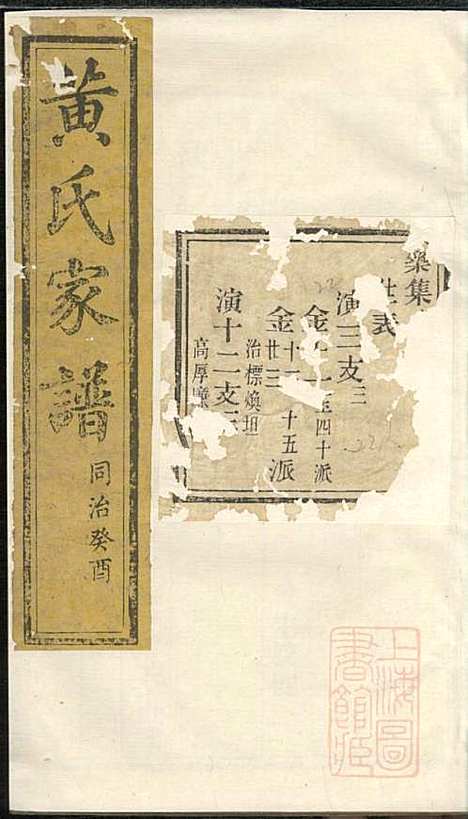 黄氏家譜
同治癸酉
樂集
世表
演三支三
金
至四十派
金十一
廿三
十五派
治標煥坦
演十二支三
高厚
上海圖
書館藏